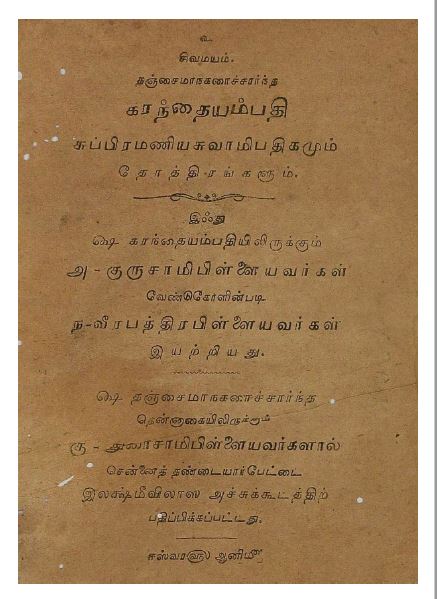 உ
சிவமயம்.
தஞ்சைமாநகரைச்சார்ந்த
கரந்தையம்பதி
சுப்பிரமணியசுவாமிபதிகமும்
தோத்திரங்களும்.
இஃது
௸ கரந்தையம்பதியிலிருக்கும்
அ - குருசாமிபிள்ளையவர்கள்
வேண்டுகோளின்படி
ந - வீரபத்திரபிள்ளையவர்கள்
இயற்றியது.
௸ தஞ்சைமாநகரைச்சார்ந்த
கு - துரைசாமிபிள்ளையவர்களால்
சென்னைத் தண்டையார்பேட்டை
இலக்ஷ்மீவிலாஸ அச்சுக்கூடத்திற்
பதிப்பிக்கப்பட்டது.
ஈஸ்வர௵ ஆனி௴